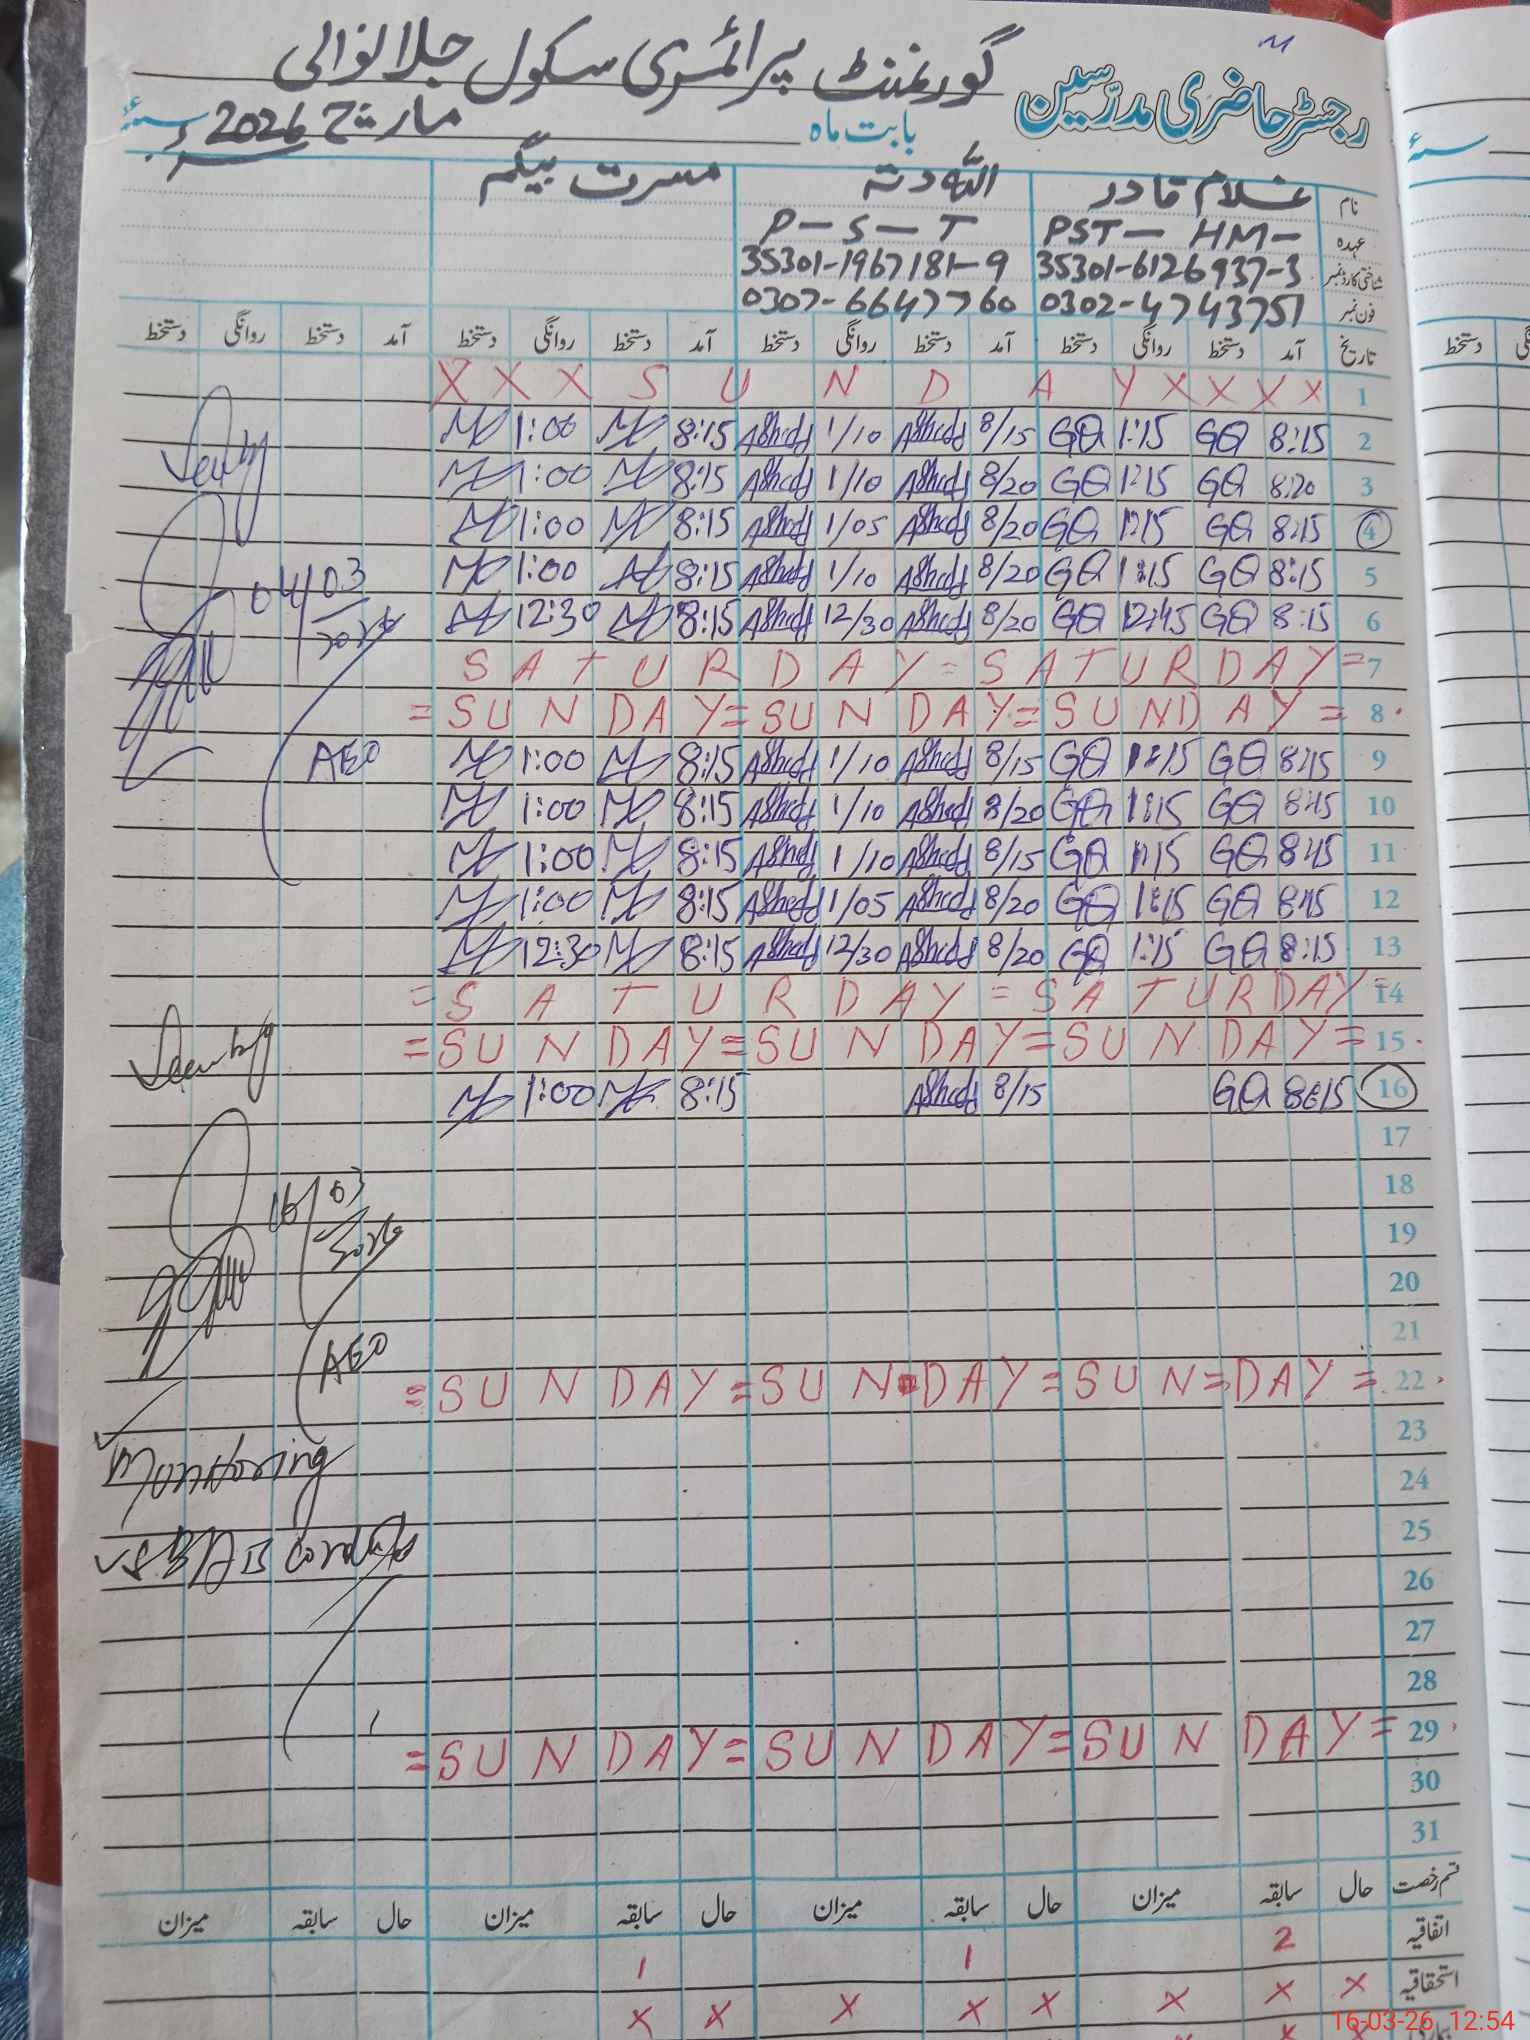 رجسٹر حاضری مدرسین گورنمنٹ پرائمری سکول جلانوالی
بابت ماہ مارچ 2026
نام غلام قادر اللہ دتہ مسرت بیگم
عہدہ PST- HM- P-S-T
شناختی کارڈ نمبر 35301-6126937-3 35301-1967181-9
فون نمبر 0302-4743751 0307-6647760
تاریخ آمد دستخط روانگی دستخط آمد دستخط روانگی دستخط آمد دستخط روانگی دستخط آمد دستخط روانگی دستخط
X X X S U N D A Y X X X X 1
1:00 8:15 Ashraf 1/10 Ashraf 8/15 GQ 1:15 GQ 8:15 2
1:00 8:15 Ashraf 1/10 Ashraf 8/20 GQ 1:15 GQ 8:20 3
1:00 8:15 Ashraf 1/05 Ashraf 8/20 GQ 1:15 GQ 8:15 4
1:00 8:15 Ashraf 1/10 Ashraf 8/20 GQ 1:15 GQ 8:15 5
12:30 8:15 Ashraf 12/30 Ashraf 8/20 GQ 12:45 GQ 8:15 6
04/03
2026
S A T U R D A Y = S A T U R D A Y = 7
= S U N D A Y = S U N D A Y = S U N D A Y = 8
AEO 1:00 8:15 Ashraf 1/10 Ashraf 8/15 GQ 1:15 GQ 8:15 9
1:00 8:15 Ashraf 1/10 Ashraf 8/20 GQ 1:15 GQ 8:15 10
1:00 8:15 Ashraf 1/10 Ashraf 8/15 GQ 1:15 GQ 8:15 11
1:00 8:15 Ashraf 1/05 Ashraf 8/20 GQ 1:15 GQ 8:15 12
12:30 8:15 Ashraf 12/30 Ashraf 8/20 GQ 1:15 GQ 8:15 13
= S A T U R D A Y = S A T U R D A Y = 14
= S U N D A Y = S U N D A Y = S U N D A Y = 15
1:00 8:15 Ashraf 8/15 GQ 8:15 16
17
16/03
2026
18
19
20
21
AEO
= S U N D A Y = S U N = D A Y = S U N = D A Y = 22
23
Monitoring
24
25
26
27
28
= S U N D A Y = S U N D A Y = S U N D A Y = 29
30
31
قسم رخصت حال سابقہ میزان حال سابقہ میزان حال سابقہ میزان حال سابقہ میزان
اتفاقیہ 2 1 1
استحقاقیہ x x x x x x x x
16-03-26 12:54